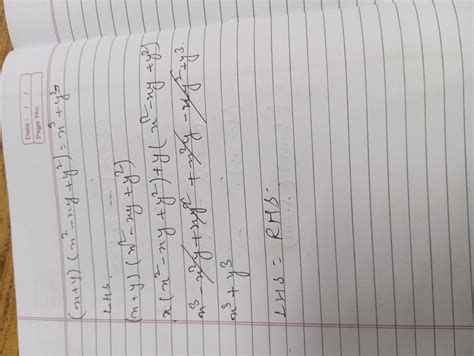 Date: / /
Page No.
(x+y) (x² - xy + y²) = x³ + y³
LHS.
(x+y) (x² - xy + y²)
x(x² - xy + y²) + y(x² - xy + y²)
x³ - x²y + xy² + x²y - xy² + y³
x³ + y³
LHS = RHS.